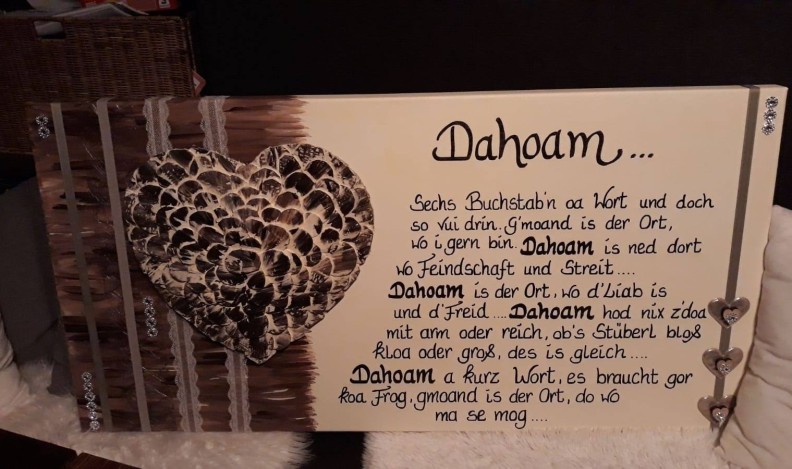 Dahoam...
Sechs Buchstab'n oa Wort und doch
so vui drin. G'moand is der Ort,
wo i gern bin. Dahoam is ned dort
wo Feindschaft und Streit....
Dahoam is der Ort, wo d'Liab is
und d'Freid .... Dahoam hod nix z'doa
mit arm oder reich, ob's Stüberl bloß
kloa oder groß, des is gleich....
Dahoam a kurz Wort, es braucht gor
koa Frog, gmoand is der Ort, do wo
ma se mog....